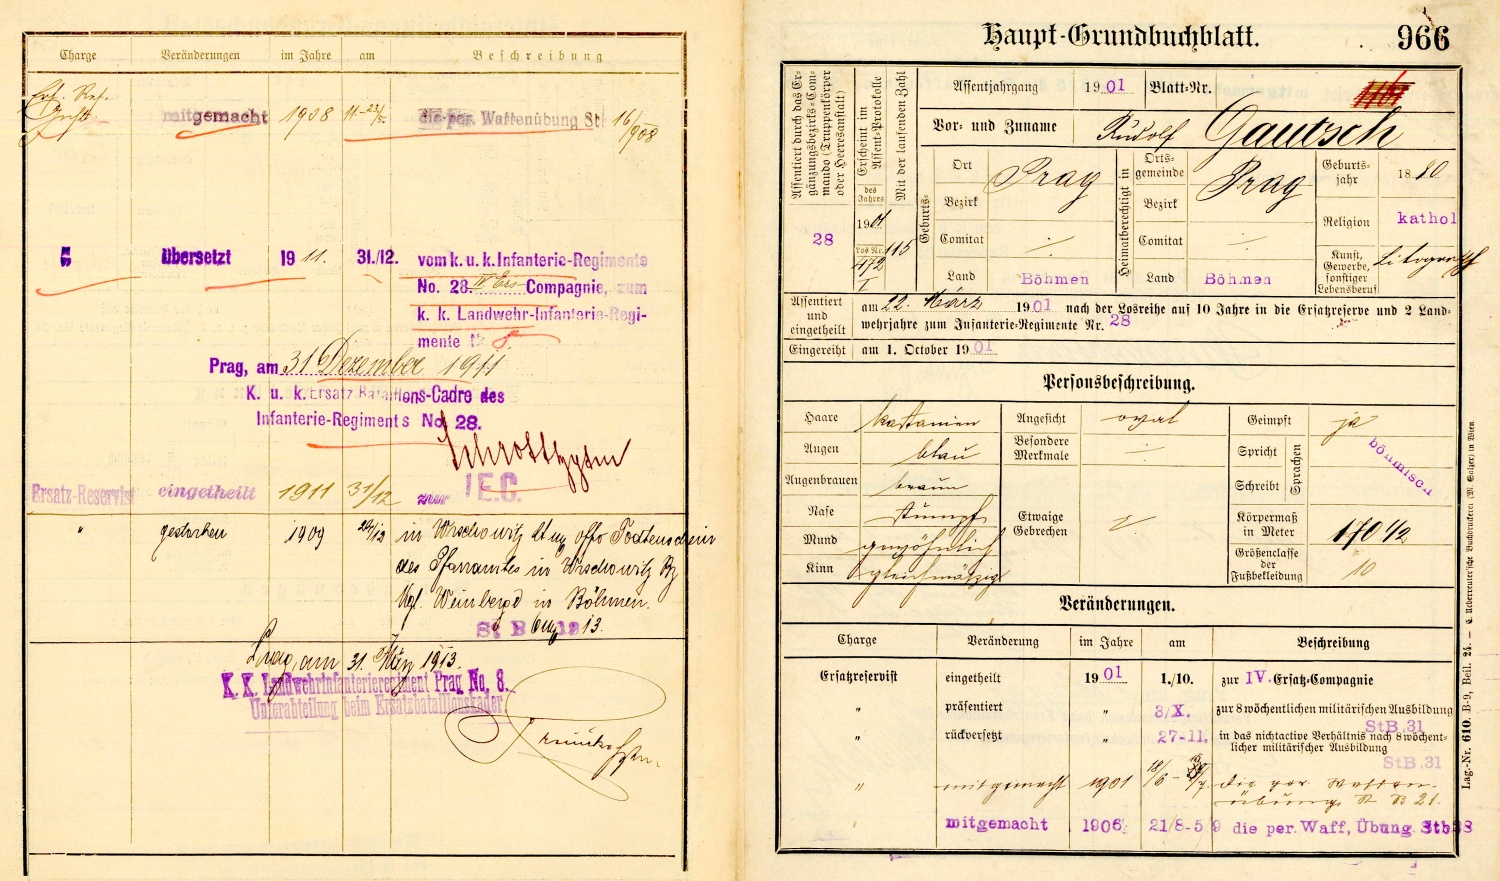 Charge
Veränderungen
im Jahre
am
Beschreibung
mitgemacht 1908 11-23/5. die per. Waffenübung St 16/908
übersetzt 1911. 31./12. vom k. u. k. Infanterie-Regimente
No. 28. IV Ers Compagnie, zum
k. k. Landwehr-Infanterie-Regi-
mente Nr 8
Prag, am 31 Dezember 1911
K. u. k. Ersatz Bataillons-Cadre des
Infanterie-Regiments No. 28.
Ersatz-Reservist eingetheilt 1911 31/12 zur I E.C.
" gestorben 1909 24/12 in Wrschowitz lt
des Pfarramtes in Wrschowitz Bz
Kgl. Weinberge in Böhmen.
St B 13.
Prag, am 31. März 1913.
K. K. Landwehrinfanterieregiment Prag No. 8.
Unterabteilung beim Ersatzbataillonskader.
Haupt-Grundbuchblatt.
966
Assentiert durch das Er-
gänzungsbezirks-Com-
mando (Truppenkörper
oder Heeresanstalt)
28
Erscheint im
Assent-Protokolle
des
Jahres
1901
Los Nr.
472
I
Mit der laufenden Zahl
115
Assentjahrgang 1901 Blatt-Nr.
Vor- und Zuname Rudolf Gautsch
Geburts-
Ort Prag
Bezirk
Comitat ·/·
Land Böhmen
Heimatberechtigt in
Orts-
gemeinde Prag
Bezirk
Comitat ·/·
Land Böhmen
Geburts-
jahr 1880
Religion kathol
Kunst,
Gewerbe,
sonstiger
Lebensberuf Litograf
Assentiert
und
eingetheilt
am 22. März 1901 nach der Losreihe auf 10 Jahre in die Ersatzreserve und 2 Land-
wehrjahre zum Infanterie-Regimente Nr. 28
Eingereiht am 1. October 1901
Personsbeschreibung.
Haare kastanien
Augen blau
Augenbrauen braun
Nase stumpf
Mund gewöhnlich
Kinn gleichmäßig
Angesicht oval
Besondere
Merkmale ·/·
Etwaige
Gebrechen ·/·
Geimpft ja
Spricht
Schreibt
Sprachen
böhmisch
Körpermaß
in Meter 170 1/2
Größenclasse
der
Fußbekleidung 10
Veränderungen.
Charge Veränderung im Jahre am Beschreibung
Ersatzreservist eingetheilt 1901 1./10. zur IV. Ersatz-Compagnie
" präsentiert " 3/X. zur 8 wöchentlichen militärischen Ausbildung
StB.31
" rückversetzt " 27-11. in das nichtactive Verhältnis nach 8 wöchent-
licher militärischer Ausbildung
StB.31
" mitgemacht 1901 18/6 - die per Waffen-
übung St B 21.
mitgemacht 1906 21/8-5/9 die per. Waff, Übung Stb 38
Lag.-Nr. 610. B-9, Beil. 24. — C. Ueberreuter'sche Buchdruckerei (M. Salzer) in Wien